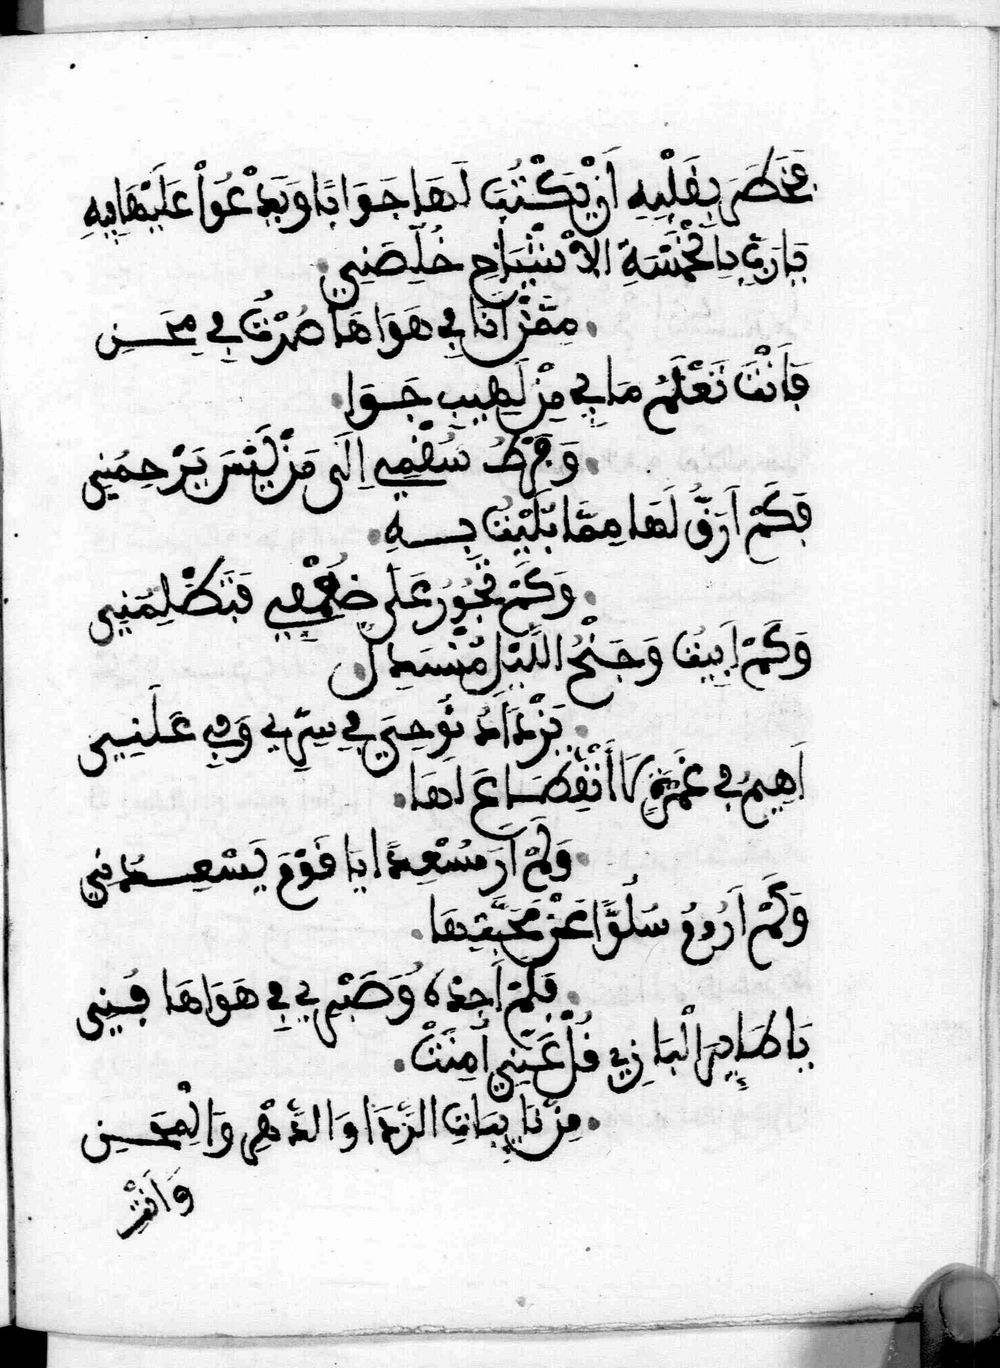 فخطر بقلبه أن يكتب لها جوابا ويدعوا عليها به
يا رب بالخمسة الاشباح خلصني
ممن أنا في هواها صرت في محن
فأنت تعلم ما بي من لهيب جوا
وفرط سقمي إلى من ليس يرحمني
فكم ارق لها مما بليت به
وكم تجور على ضعفي فتظلمني
وكم ابيت وجنح الليل منسدل
يزداد نوحي في سري وفي علني
اهيم في غمرة لا أنقطاع لها
ولم أر مسعدا يا قوم يسعدني
وكم اروم سلوا عن محبتها
فلم أجده وصبري في هواها فني
يا طاير البان قل عني أمنت
من نايبات الردا والدهر والمحن
وانت